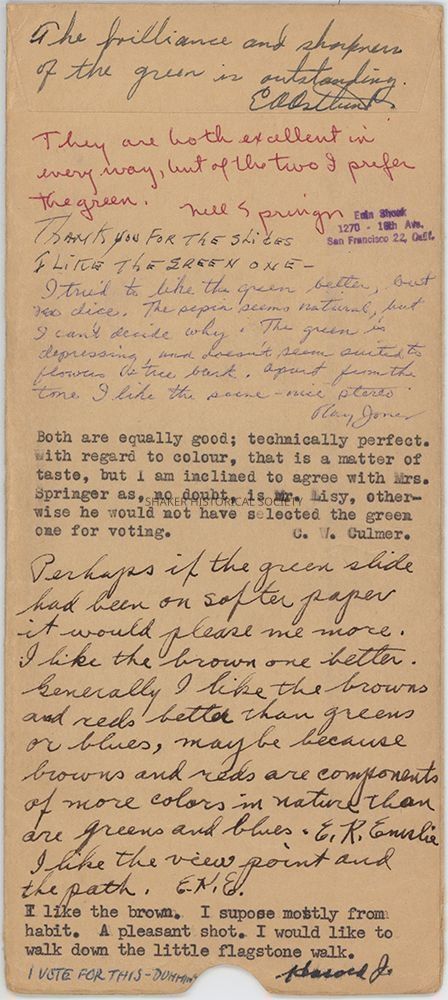 The brilliance and sharpness
of the green is outstanding.
E A Ostlund
They are both excellent in
every way, but of the two I prefer
the green. Nell Springer
Erin Shook
1270 - 16th Ave.
San Francisco 22, Calif.
THANK YOU FOR THE SLIDES
I LIKE THE GREEN ONE -
I tried to like the green better, but
no dice. The sepia seems natural, but
I can't decide why. The green is
depressing, and doesn't seem suited to
flowers & tree bark. Apart from the
tone I like the scene - nice stereo
Ray Jones
Both are equally good; technically perfect.
With regard to colour, that is a matter of
taste, but I am inclined to agree with Mrs.
Springer as, no doubt, is Mr. Lisy, other-
SHAKER HISTORICAL SOCIETY
wise he would not have selected the green
one for voting. C. W. Culmer.
Perhaps if the green slide
had been on softer paper
it would please me more.
I like the brown one better.
Generally I like the browns
and reds better than greens
or blues, maybe because
browns and reds are components
of more colors in nature than
are greens and blues. E. R. Emslie
I like the view point and
the path. E.K.E.
I like the brown. I supose mostly from
habit. A pleasant shot. I would like to
walk down the little flagstone walk.
I VOTE FOR THIS -